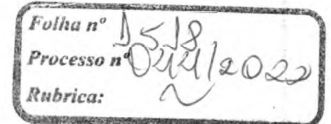 Folha nº 1518
Processo nº 044/2022
Rubrica: